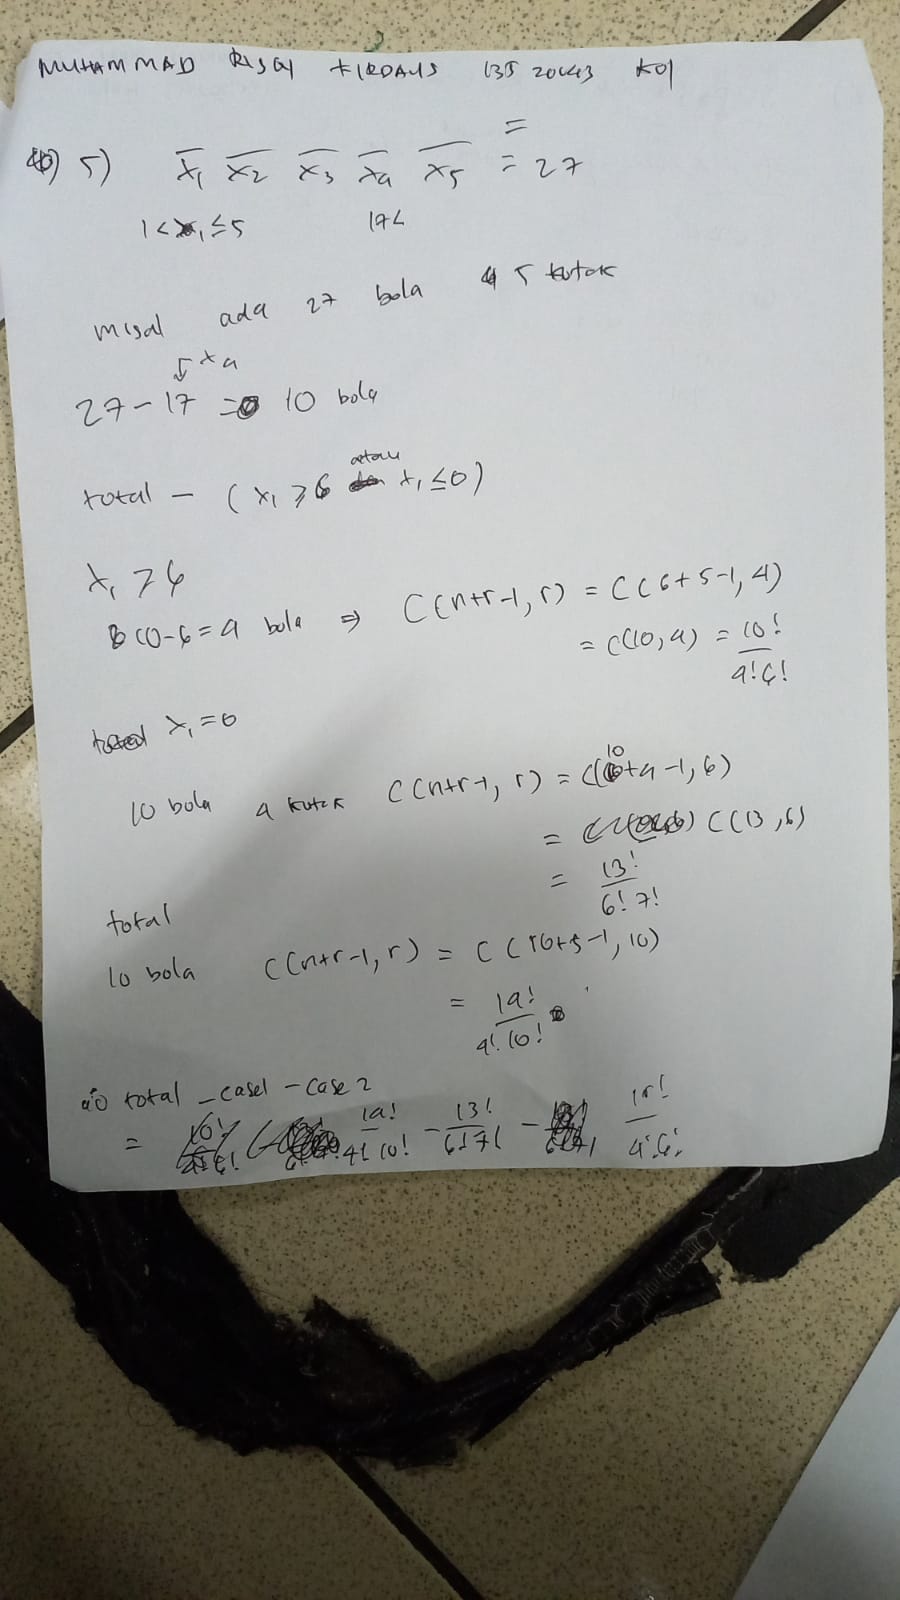 MUHAMMAD RISQI FIRDAUS 135 20043 K01
5) x₁ x₂ x₃ x₄ x₅ = 27
1 < x₁ ≤ 5 17 <
misal ada 27 bola 5 kotak
↓ x₄
27 - 17 = 10 bola
atau
total - (x₁ ≥ 6 x₁ ≤ 0)
x₁ ≥ 6
10-6 = 4 bola ⇒ C(n+r-1, r) = C(6+5-1, 4)
= C(10, 4) = 10!
4! 6!
x₁ = 0
10 bola 4 kotak C(n+r-1, r) = C(10+4-1, 6)
= C(13, 6)
= 13!
6! 7!
total
10 bola C(n+r-1, r) = C(10+5-1, 10)
= 14!
4! 10!
total - case1 - case 2
= 14! - 13! - 10!
4! 10! 6! 7! 4! 6!